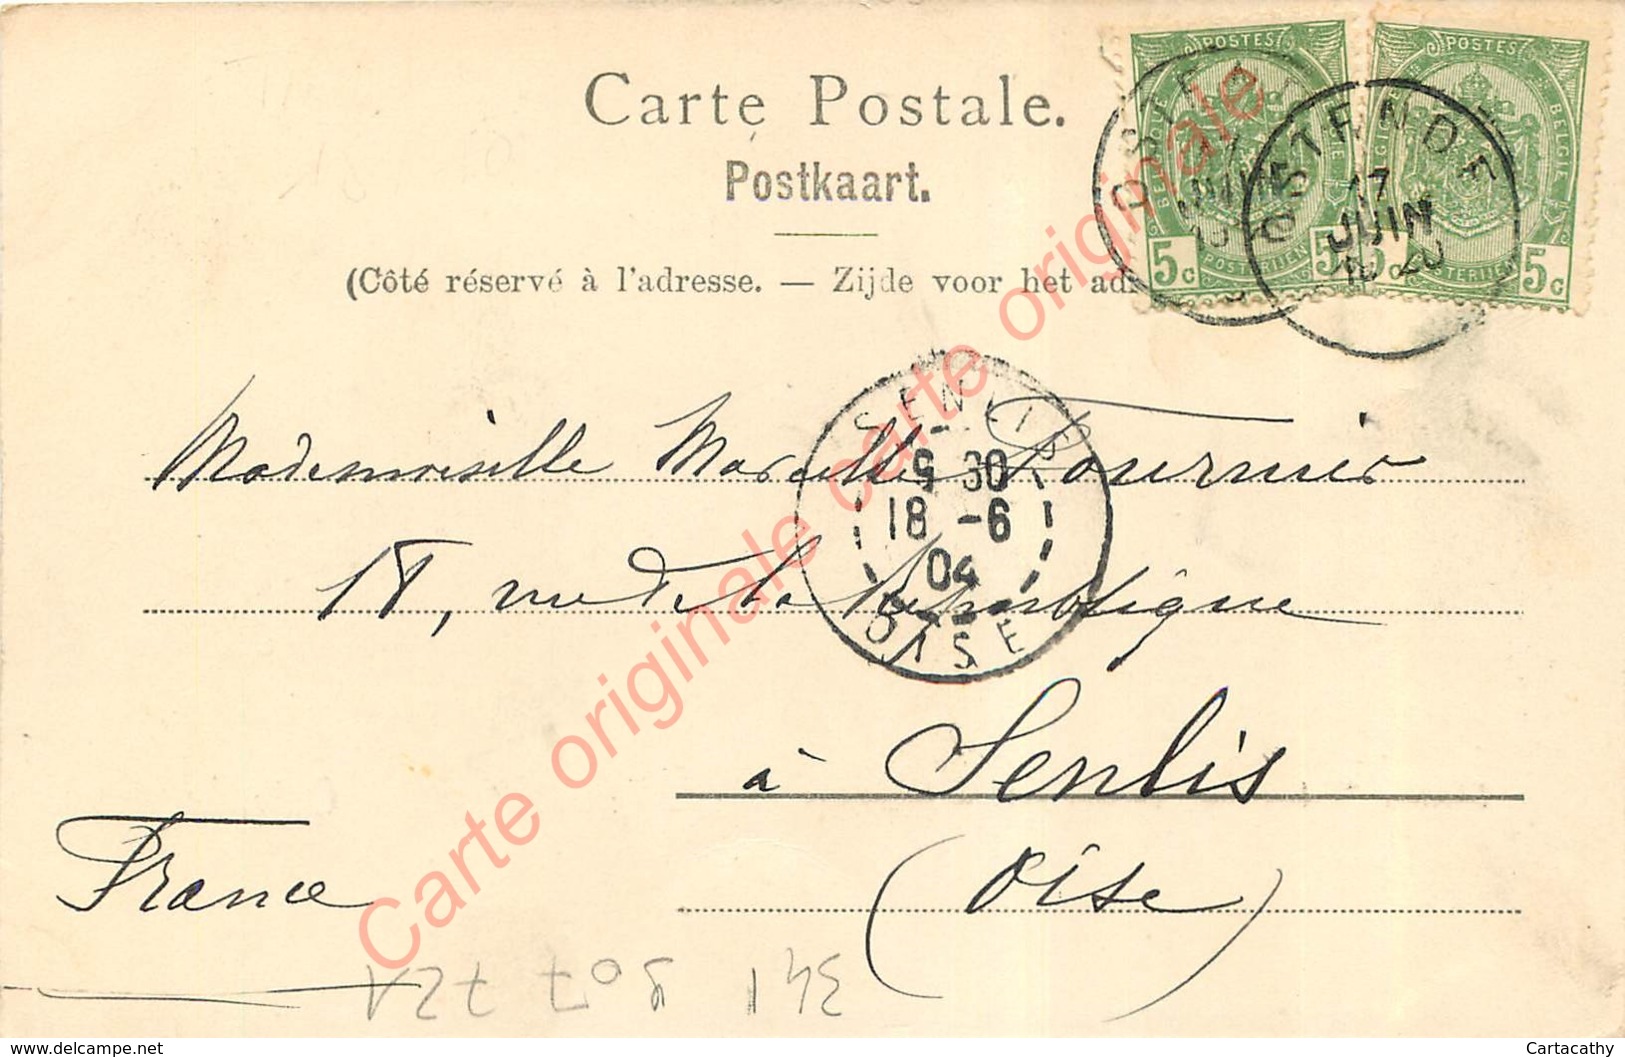 Carte Postale.
Postkaart.
(Côté réservé à l'adresse. — Zijde voor het
POSTES
BELGIQUE
POSTERIJEN
5c
POSTES
BELGIE
5c
OSTENDE
JUIN
OSTENDE
17
JUIN
SENLIS
9 30
18 -6
04
OISE
Mademoiselle Marcelle Fournier
18, rue de la République
à Senlis
(Oise)
France
341 807 721
Carte originale carte originale
www.delcampe.net
Cartacathy